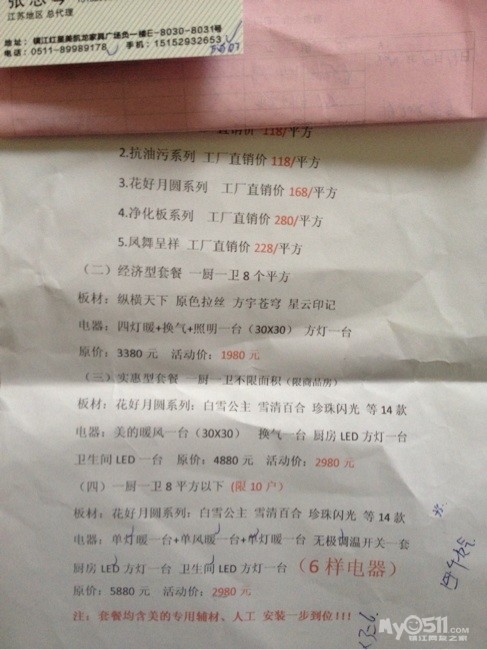 江苏地区 总代理
地址：镇江红星美凯龙家具广场负一楼E-8030-8031号
电话：0511-89989178 手机：15152932653
直销价 118/平方
2.抗油污系列 工厂直销价 118/平方
3.花好月圆系列 工厂直销价 168/平方
4.净化板系列 工厂直销价 280/平方
5.风舞呈祥 工厂直销价 228/平方
（二）经济型套餐 一厨一卫 8 个平方
板材：纵横天下 原色拉丝 方字苍穹 星云印记
电器：四灯暖+换气+照明一台（30X30） 方灯一台
原价：3380 元 活动价：1980 元
（三）实惠型套餐 一厨一卫不限面积（限商品房）
板材：花好月圆系列：白雪公主 雪清百合 珍珠闪光 等 14 款
电器：美的暖风一台（30X30） 换气一台 厨房 LED 方灯一台
卫生间 LED 一台 原价：4880 元 活动价：2980 元
（四）一厨一卫 8 平方以下（限 10 户）
板材：花好月圆系列：白雪公主 雪清百合 珍珠闪光 等 14 款
电器：单灯暖一台+单风暖一台+单灯暖一台 无极调温开关一套
厨房 LED 方灯一台 卫生间 LED 方灯一台（6 样电器）
原价：5880 元 活动价：2980 元
注：套餐均含美的专用辅材、人工 安装一步到位！！！
My0511.com
镇江网友之家